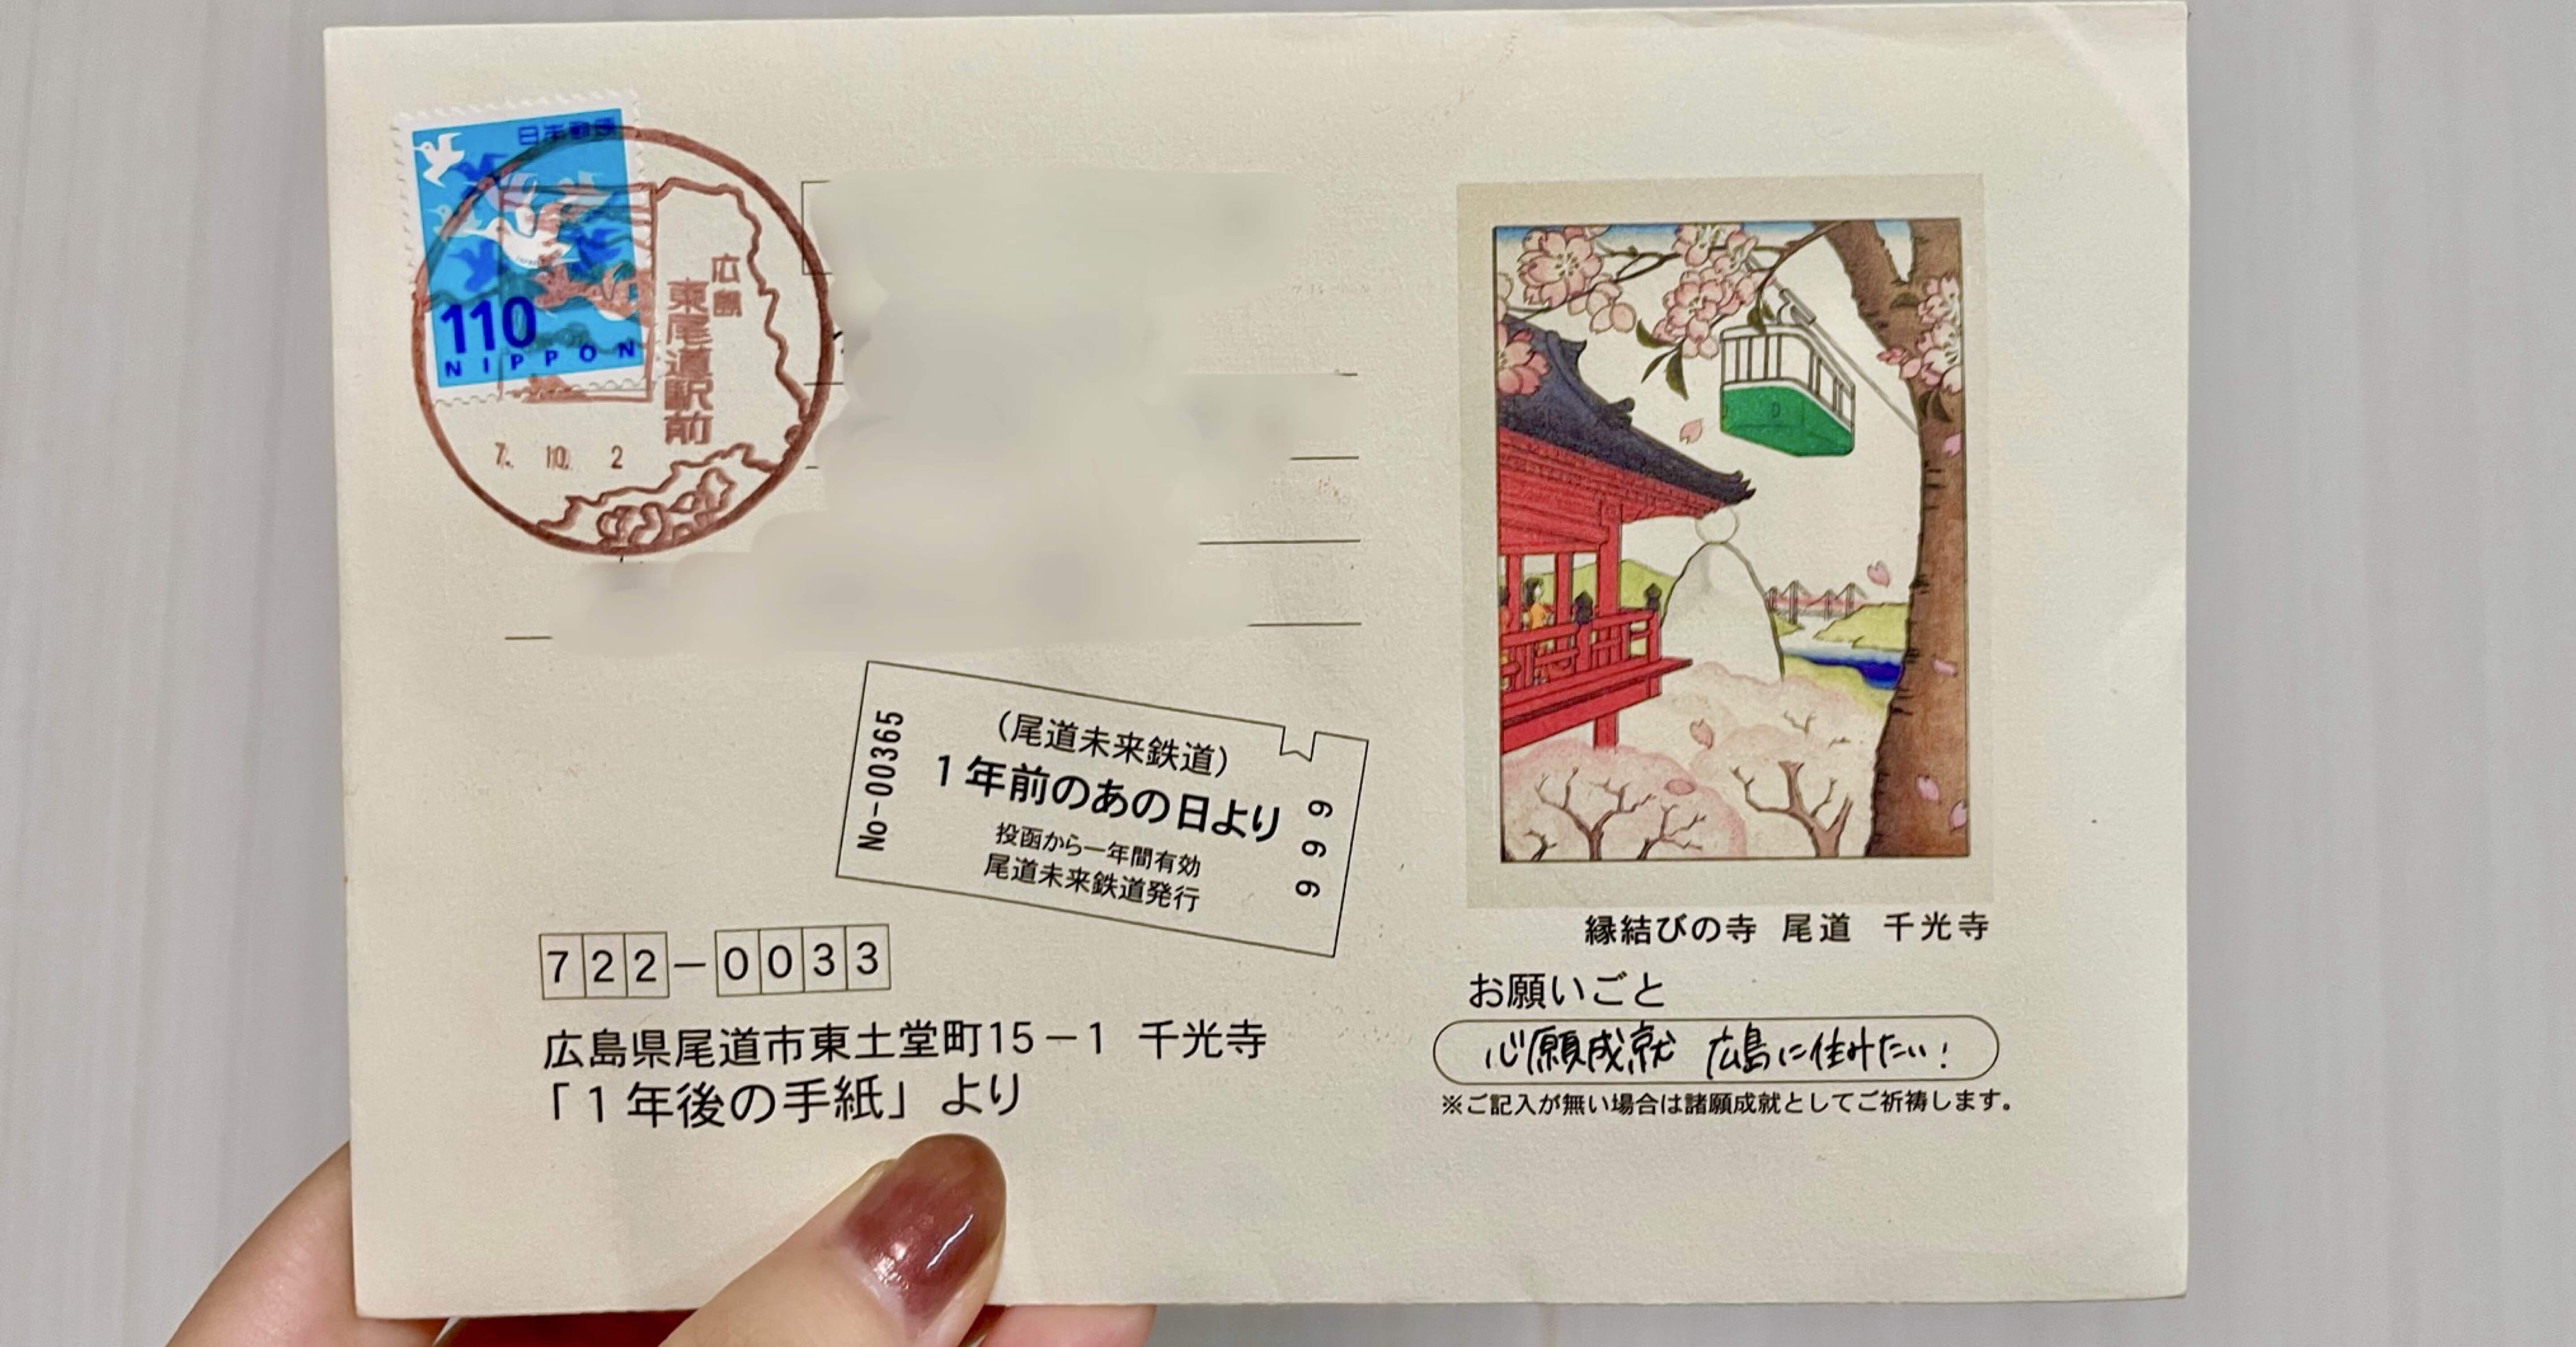 日本郵便
110
NIPPON
広島
東尾道駅前
7. 10. 2
No-00365
(尾道未来鉄道)
1年前のあの日より
投函から一年間有効
尾道未来鉄道発行
9999
722-0033
広島県尾道市東土堂町15-1 千光寺
「1年後の手紙」より
縁結びの寺 尾道 千光寺
お願いごと
心願成就 広島に住みたい!
※ご記入が無い場合は諸願成就としてご祈祷します。